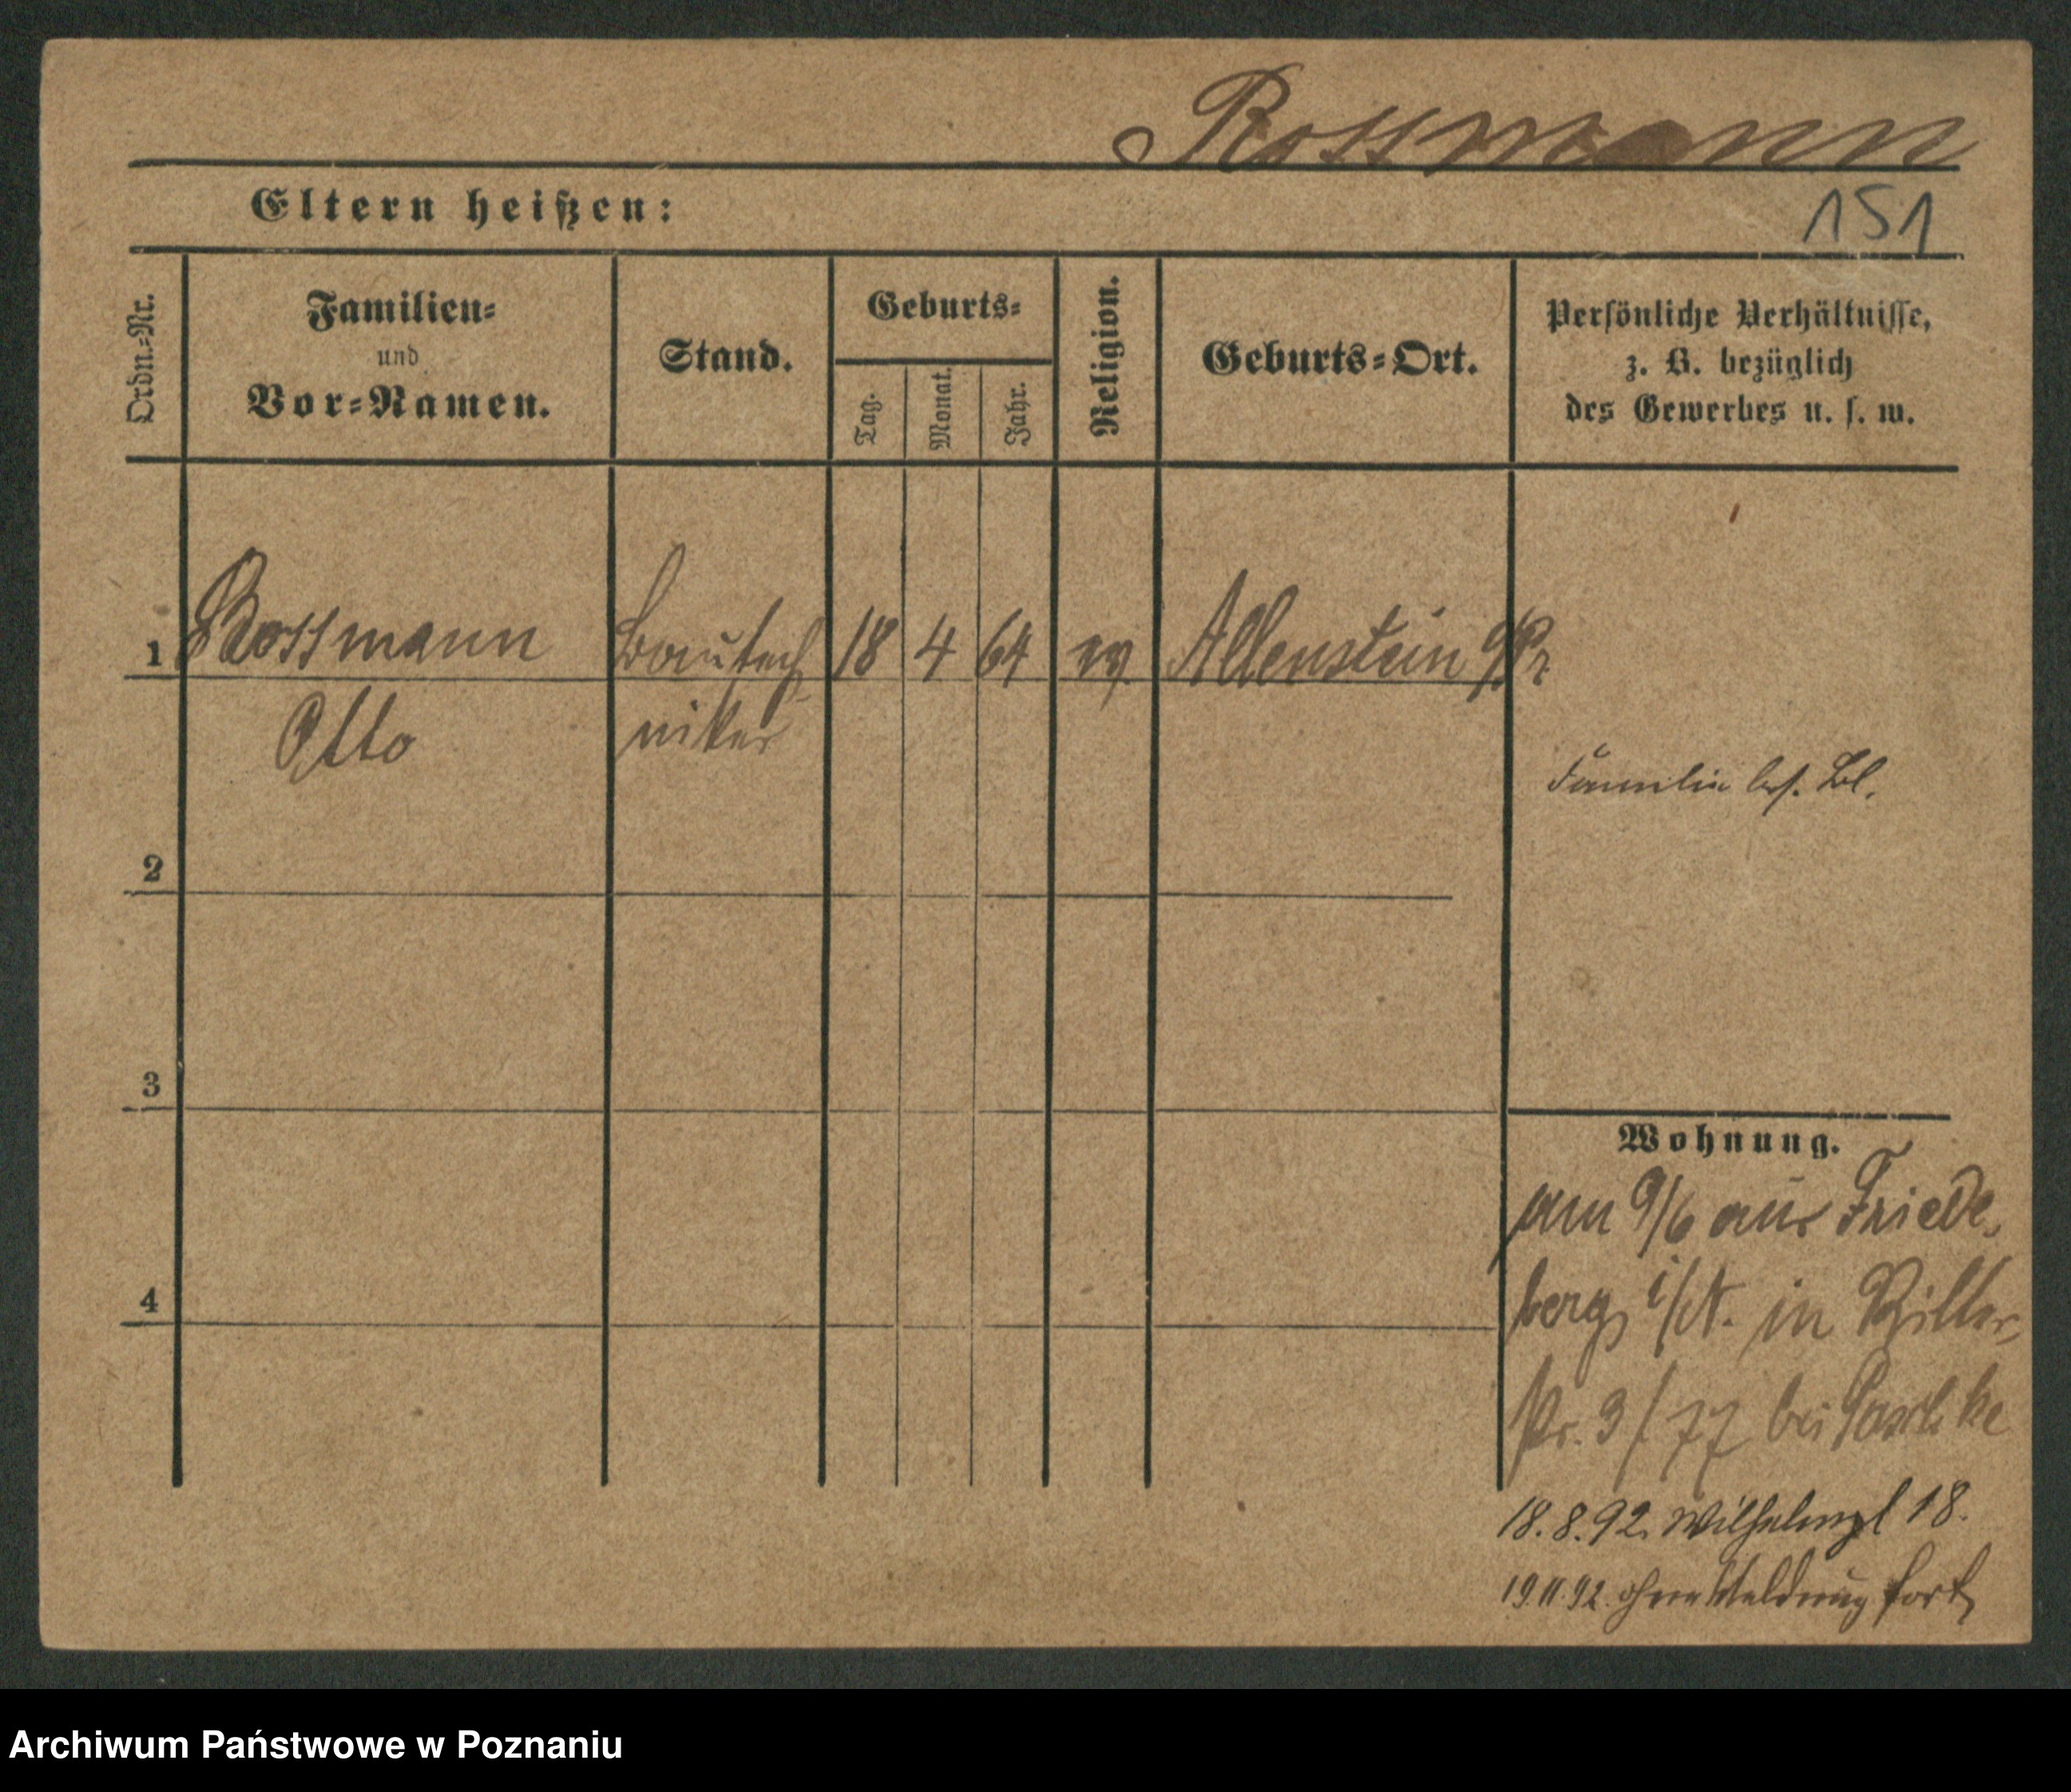 Rossmann
Eltern heißen:
151
Ordn.-Nr.
Familien-
und
Vor-Namen.
Stand.
Geburts-
Tag.
Monat.
Jahr.
Religion.
Geburts-Ort.
Persönliche Verhältnisse,
z. B. bezüglich
des Gewerbes u. s. w.
1 Rossmann Bautech 18 4 64 ev. Allenstein
Otto niker
Familie bes. Bl.
2
3
4
Wohnung.
am 9/6 aus Friede-
berg i/N. in Ritter-
str. 3 / bei
18.8.92. Wilhelmpl 18.
19.11.92. ohne Meldung fort
Archiwum Państwowe w Poznaniu